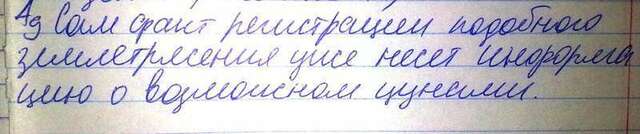 Ag Сам факт регистрации подобного
землетрясения уже несет информа
цию о возможном цунами.